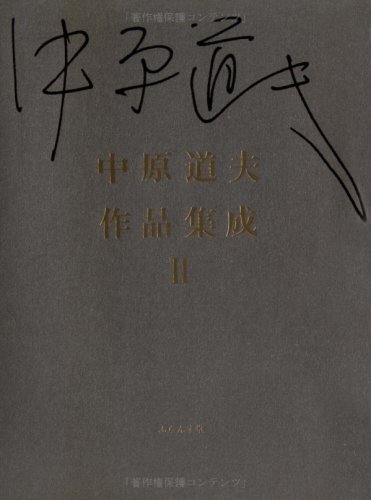 「著作権保護コンテンツ」
中原道夫
中原道夫
作品集成
II
ふらんす堂
「著作権保護コンテンツ」